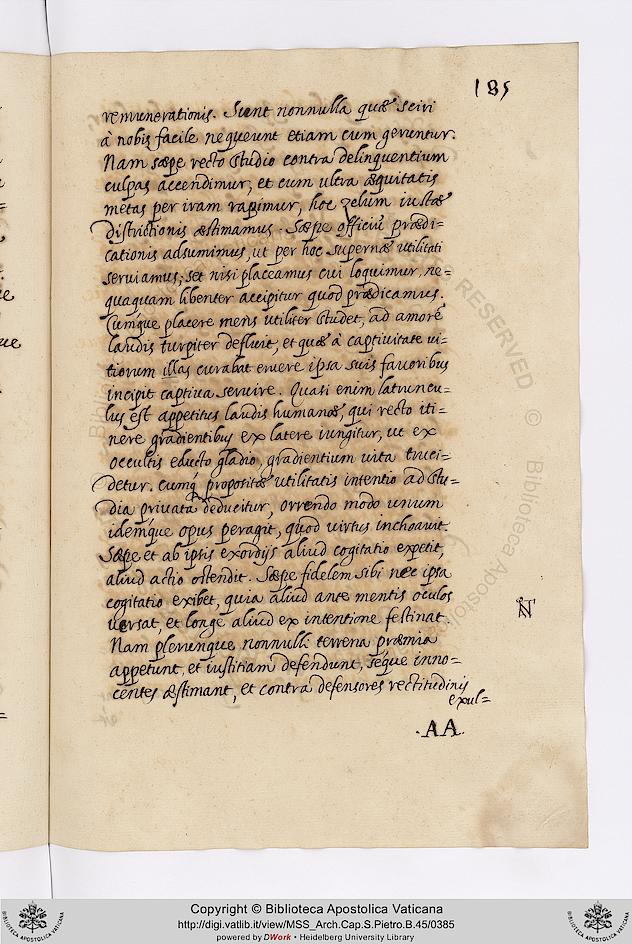 185
remunerationis. Sunt nonnulla quæ sciri
à nobis facile nequeunt etiam cum geruntur.
Nam sæpe recto studio contra delinquentium
culpas accendimur, et cum ultra æquitatis
metas per iram rapimur, hoc zelum iustæ
districtionis æstimamus. Sæpe officiũ prædi=
cationis adsumimus, ut per hoc supernæ utilitati
seruiamus; set nisi placeamus cui loquimur, ne=
quaquam libenter accipitur quod prædicamus.
Cumque placere mens utiliter studet, ad amorẽ
laudis turpiter defluit, et quæ à captiuitate ui=
tiorum illas curabat eruere ipsa suis fauoribus
incipit captiua seruire. Quasi enim latruncu=
lus est appetitus laudis humanæ, qui recto iti=
nere gradientibus ex latere iungitur, ut ex
occultis educto gladio, gradientium uita truci=
detur. cumq́ propositæ utilitatis intentio ad stu=
dia priuata deducitur, orrendo modo unum
idemq́ue opus peragit, quod virtus inchoauit.
Sæpe et ab ipsis exordijs aliud cogitatio expetit,
aliud actio ostendit. Sæpe fidelem sibi nec ipsa
cogitatio exibet, quia aliud ante mentis oculos
uersat, et longe aliud ex intentione festinat.
Nam plerunque nonnulli terrena præmia
appetunt, et iustitiam defendunt, seq́ue inno=
centes æstimant, et contra defensores rectitudinis
expul=
.AA.
RESERVED © Biblioteca Apostoli
Copyright © Biblioteca Apostolica Vaticana
http://digi.vatlib.it/view/MSS_Arch.Cap.S.Pietro.B.45/0385
powered by DWork • Heidelberg University Library